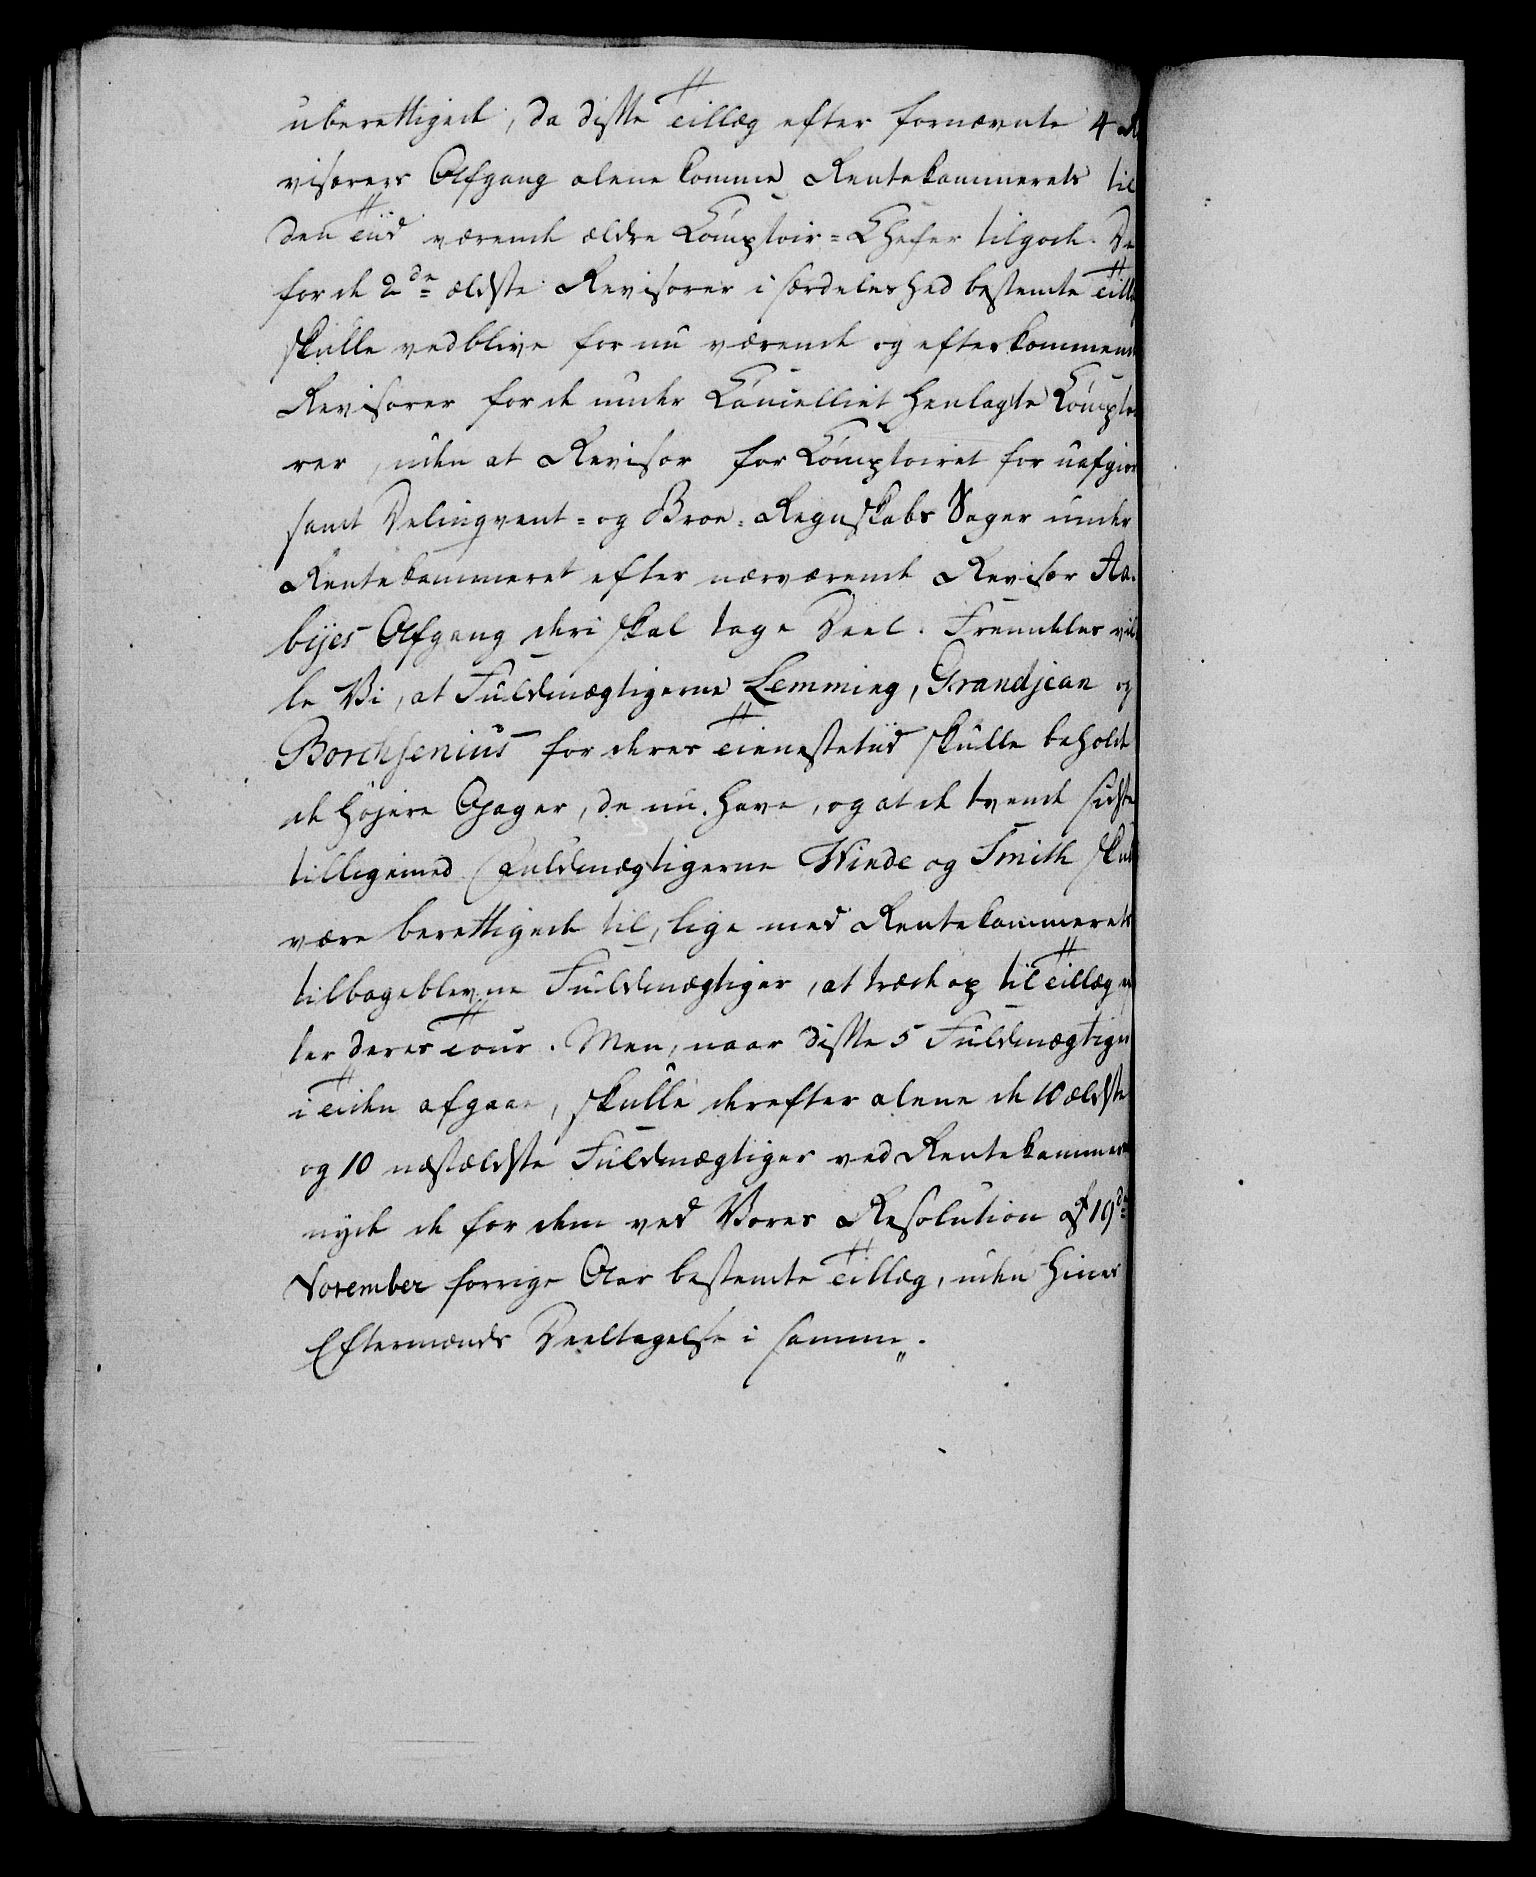 uberettigede, da disse Tillæg efter fornævnte 4 Re
visorers Afgang alene komme Rentekammerets til
den Tiid værende ældre Comptoir=Chefer tilgode. De
for de 2de ældste Revisorer i særdeleshed bestemte Tillæ
skulle vedblive for nu værende og efterkommende
Revisorer for de under Cancelliet henlagte Comptoi
rer, uden at Revisor for Comptoiret for uafgior
samt Delinqvent= og Broe=Regnskabs Sager under
Rentekammeret efter nærværende Revisor Aa=
byes Afgang deri skal tage Deel. Fremdeles vil
le Vi, at Fuldmægtigerne Lemming, Grandjean og
Borchsenius for deres Tienestetiid skulle beholde
de højere Gager, de nu have, og at de tvende sidste
tilligemed Fuldmægtigerne Winde og Smith skul
være berettigede til, lige med Rentekammerets
tilbageblevne Fuldmægtiger, at træde op til Tillæg ef
ter deres Tour. Men, naar disse 5 Fuldmægtiger
i Tiden afgaae, skulle derefter alene de 10 ældste
og 10 næstældste Fuldmægtiger ved Rentekammer
nyde de for dem ved Vores Resolution af 19de
November forrige Aar bestemte Tillæg, uden hines
Eftermænds Deeltagelse i samme„.